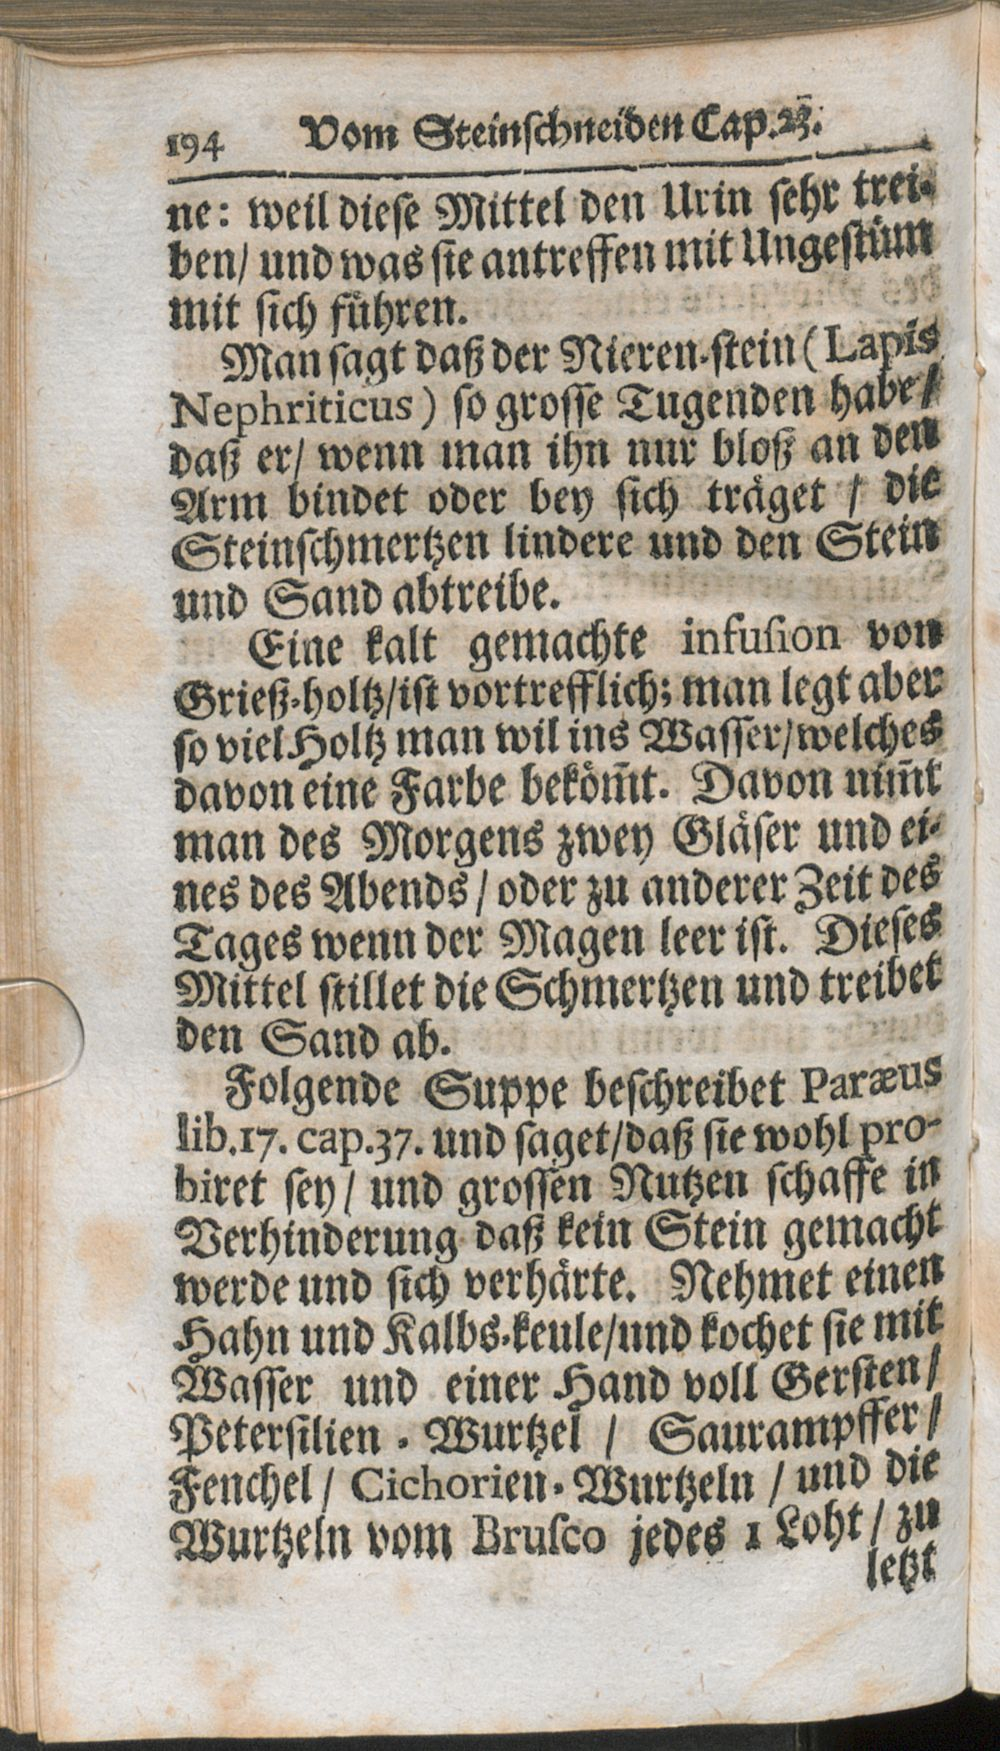 194 Vom Steinschneiden Cap. 23.
ne: weil diese Mittel den Urin sehr trei-
ben/ und was sie antreffen mit Ungestüm
mit sich führen.
Man sagt daß der Nieren-stein (Lapis
Nephriticus) so grosse Tugenden habe/
daß er/ wenn man ihn nur bloß an den
Arm bindet oder bey sich träget / die
Steinschmertzen lindere und den Stein
und Sand abtreibe.
Eine kalt gemachte infusion von
Grieß-holtz/ist vortrefflich; man legt aber
so viel Holtz man wil ins Wasser/welches
davon eine Farbe beköm̃t. Davon nim̃t
man des Morgens zwey Gläser und ei-
nes des Abends / oder zu anderer Zeit des
Tages wenn der Magen leer ist. Dieses
Mittel stillet die Schmertzen und treibet
den Sand ab.
Folgende Suppe beschreibet Paræus
lib.17. cap.37. und saget/daß sie wohl pro-
biret sey/ und grossen Nutzen schaffe in
Verhinderung daß kein Stein gemacht
werde und sich verhärte. Nehmet einen
Hahn und Kalbs-keule/und kochet sie mit
Wasser und einer Hand voll Gersten/
Petersilien-Wurtzel / Saurampffer/
Fenchel/ Cichorien-Wurtzeln / und die
Wurtzeln vom Brusco jedes 1 Loht / zu
letzt